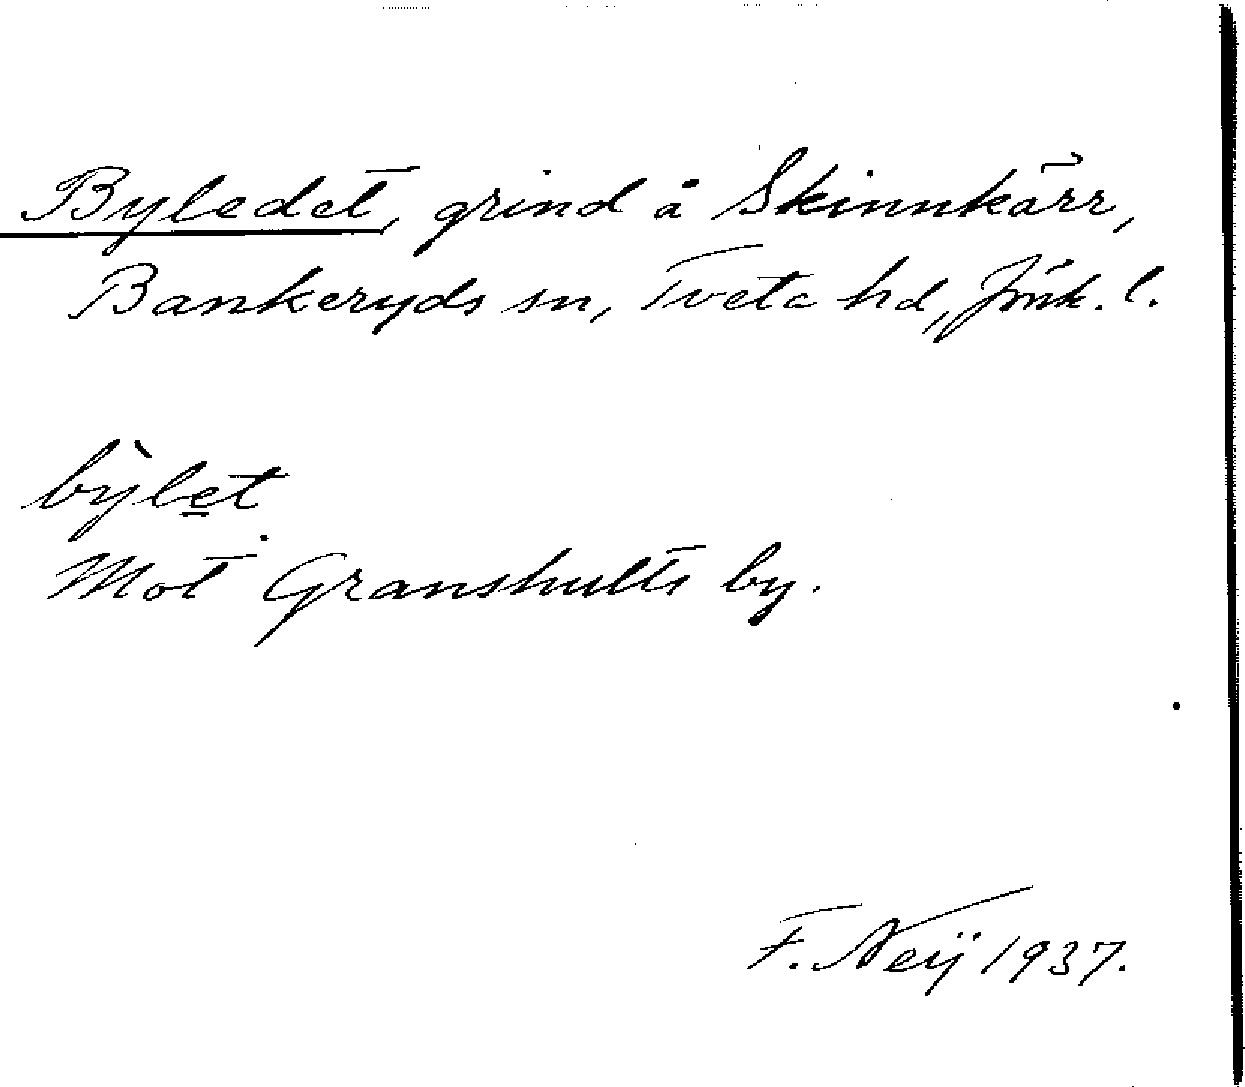 Byledet, grind å Skinnkärr,
Bankeryds sn, Tveta hd, Jönk. l.
by̍̀let.
Mot Granshults by.
F. Neij 1937.